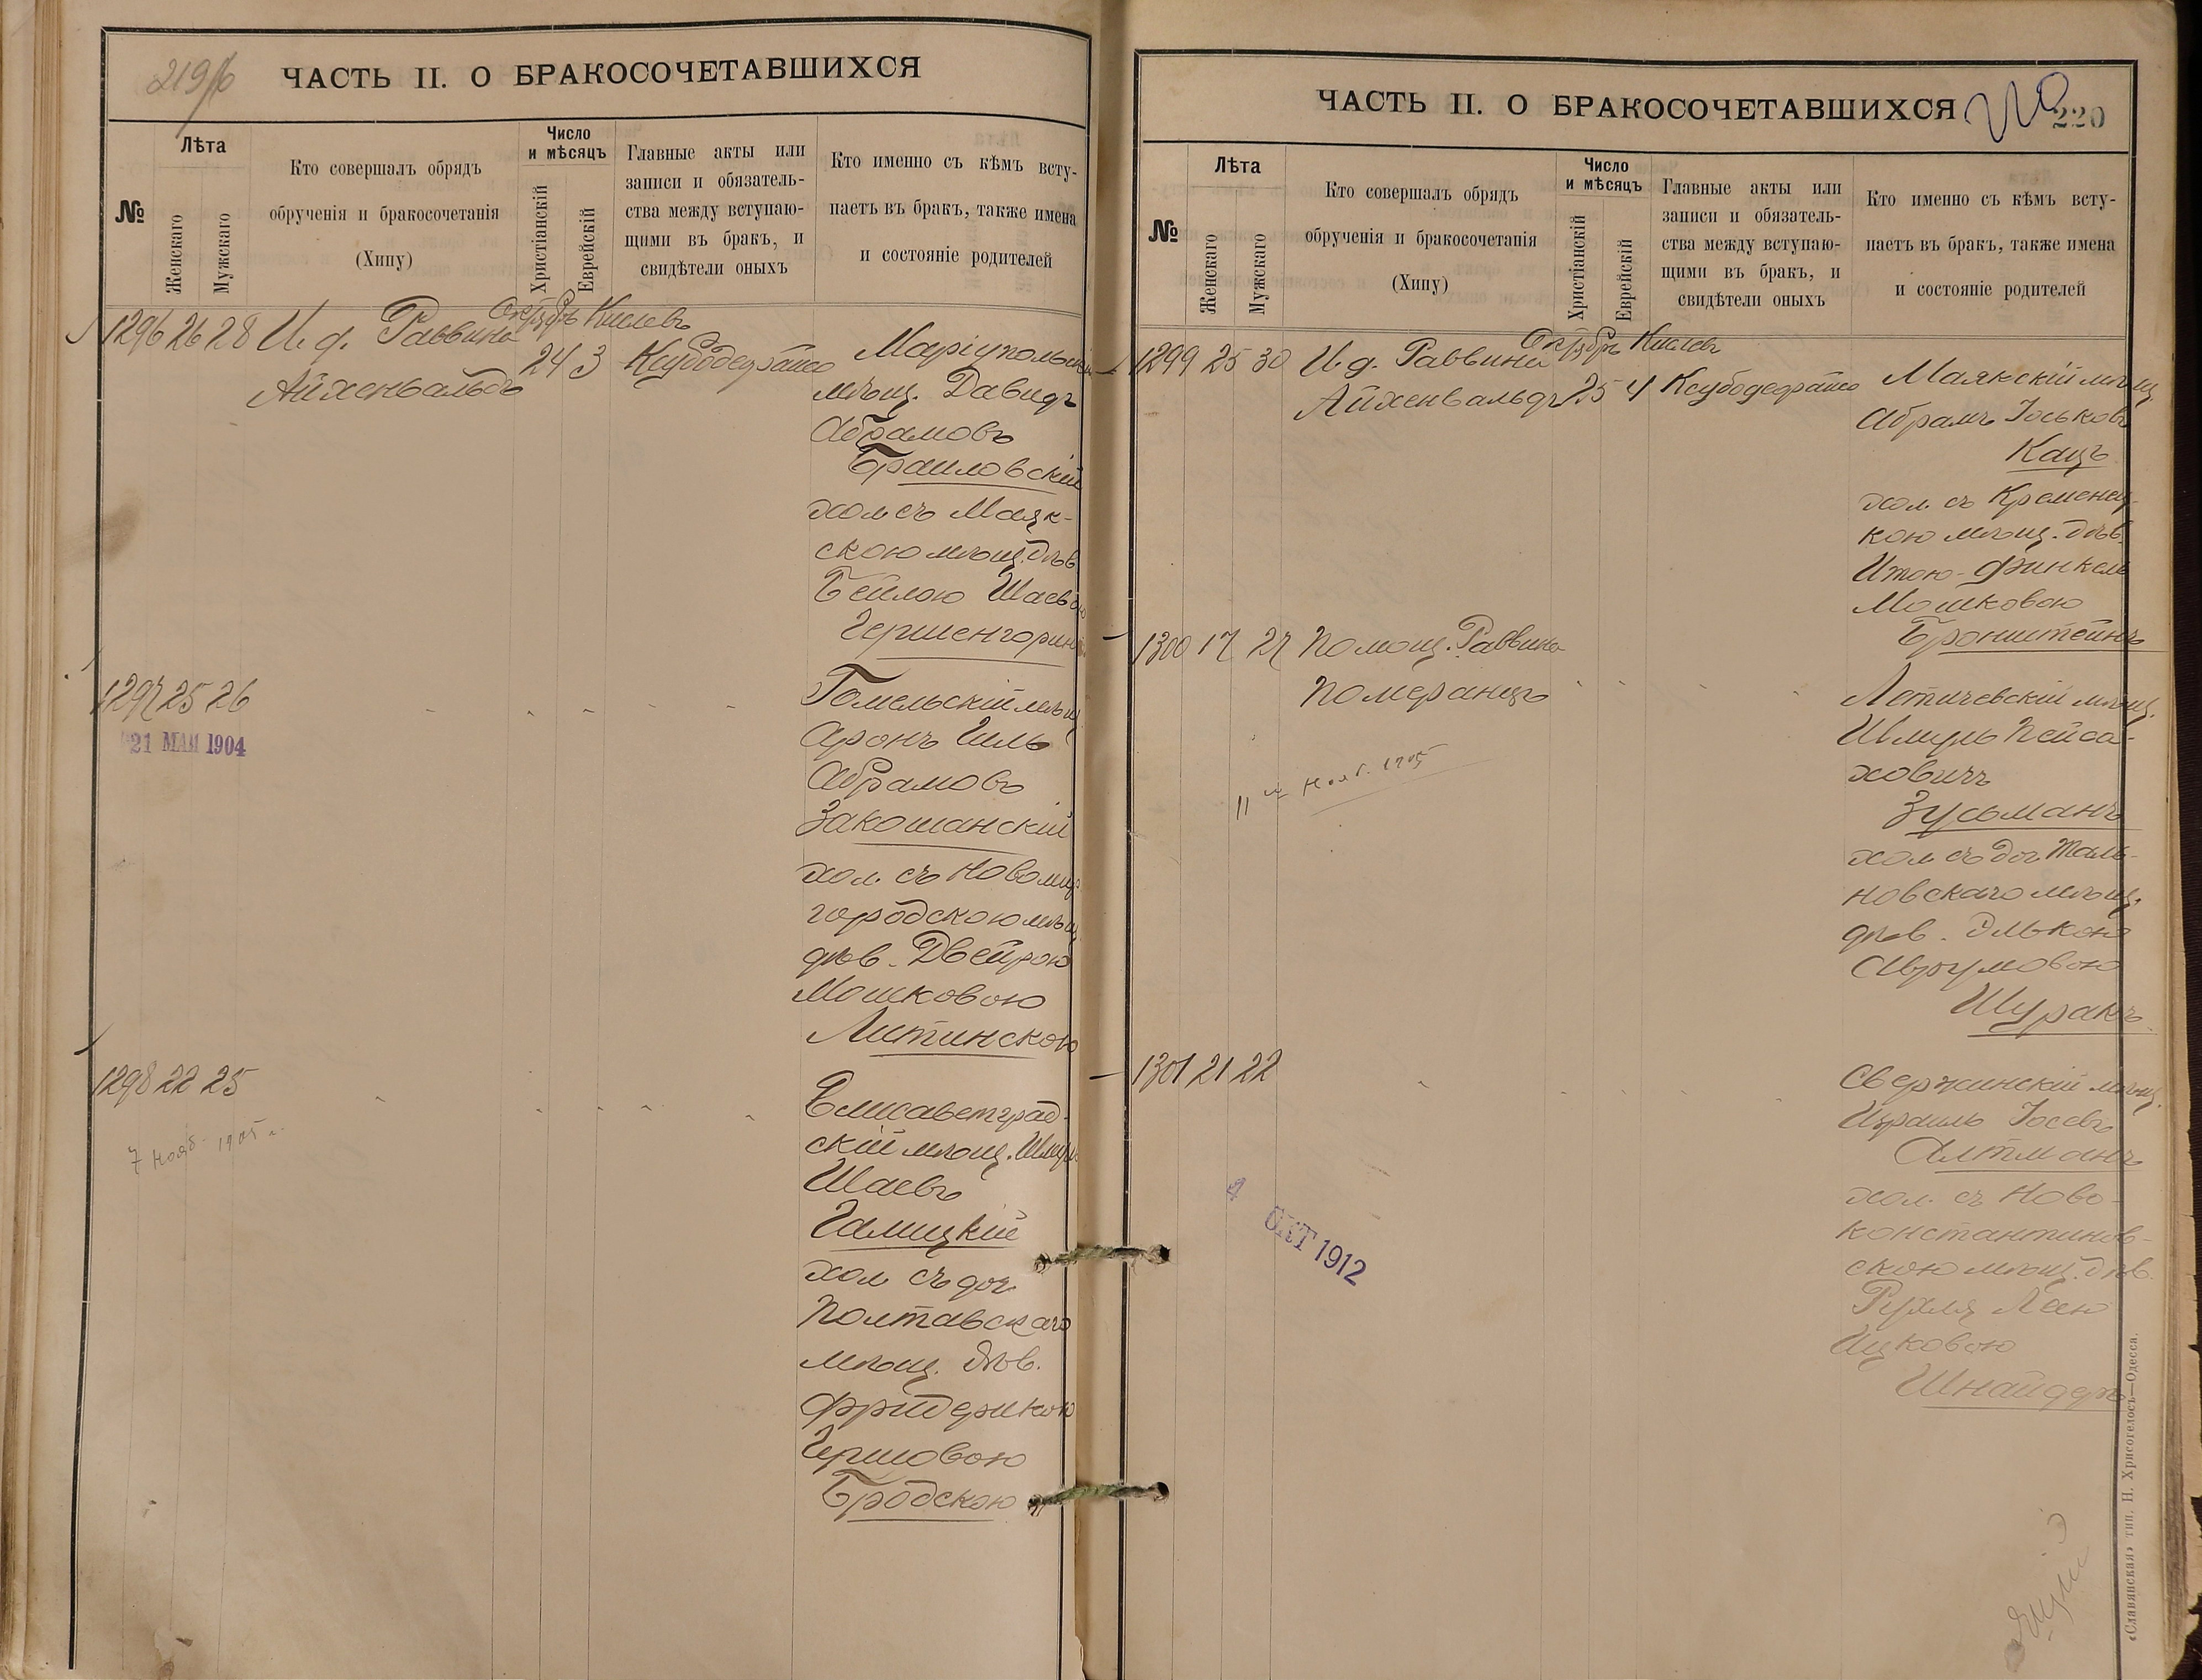 219/б
ЧАСТЬ II. О БРАКОСОЧЕТАВШИХСЯ
№
Лѣта
Женскаго
Мужскаго
Кто совершалъ обрядъ
обрученія и бракосочетанія
(Хипу)
Число
и мѣсяцъ
Христіанскій
Еврейскій
Главные акты или
записи и обязатель-
ства между вступаю-
щими въ бракъ, и
свидѣтели оныхъ
Кто именно съ кѣмъ всту-
паетъ въ бракъ, также имена
и состояніе родителей
1296 26 28 И. д. Раввина
Айхенвальдъ
Октябрь Кислевъ
24 3 Ксубодерайсо
Маріупольскій
мѣщ. Давидъ
Абрамовъ
Браиловскій
хол. съ Маяк-
скою мѣщ. дѣв
Бейлою Шаевою
Гершенгоринъ
1297 25 26
21 МАЯ 1904
Гомельскій мѣщ
Аронъ Гиль
Абрамовъ
Закошанскій
хол. съ Новомир
городскою мѣщ
дѣв. Двейрою
Мошковою
Литинскою
1298 22 25
7 Нояб. 1905 г.
Елисаветград-
скій мѣщ. Шмуль
Шаевъ
Галицкій
хол съ доч
Полтавскаго
мѣщ. дѣв.
Фридерикою
Гершовою
Бродскою
ЧАСТЬ II. О БРАКОСОЧЕТАВШИХСЯ
220
№
Лѣта
Женскаго
Мужскаго
Кто совершалъ обрядъ
обрученія и бракосочетанія
(Хипу)
Число
и мѣсяцъ
Христіанскій
Еврейскій
Главные акты или
записи и обязатель-
ства между вступаю-
щими въ бракъ, и
свидѣтели оныхъ
Кто именно съ кѣмъ всту-
паетъ въ бракъ, также имена
и состояніе родителей
1299 25 30 И д. Раввина
Айхенвальдъ
Октябрь Кислевъ
25 4 Ксубодерайсо
Маякскій мѣщ.
Абрамъ Іоськовъ
Кацъ
хол. съ Кременец-
кою мѣщ. дѣв.
Итою-Финкель
Мошковою
Бронштейнъ
1300 17 27 Помощ. Раввина
Померанцъ
11 Нояб. 1905
Летичевскій мѣщ.
Шмуль Пейса-
ховичъ
Зусьманъ
хол съ доч. Таль-
новскаго мѣщ.
дѣв. Элькою
Аврумовою
Шуракъ
1301 21 22
4 ОКТ 1912
Свержинскій мѣщ.
Израиль Іосевъ
Алтманъ
хол. съ Ново-
константинов-
скою мѣщ. дѣв.
Рухля Леею
Ицковою
Шнайдеръ
«Славянская» тип. Н. Хрисогелосъ—Одесса.